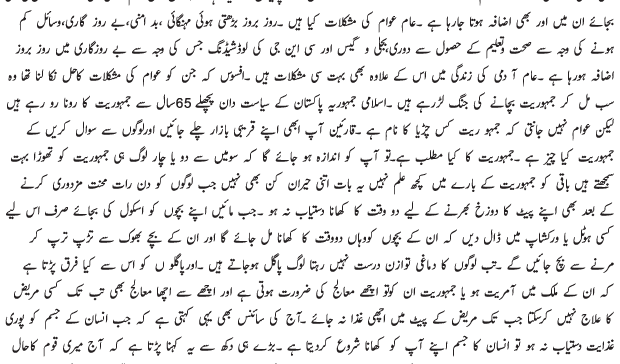 بجائے ان میں اور بھی اضافہ ہوتا جارہا ہے ۔عام عوام کی مشکلات کیا ہیں ۔روز بروز بڑھتی ہوئی مہنگائی ،بد امنی،بے روز گاری،وسائل کم
ہونے کی وجہ سے صحت وتعلیم کے حصول سے دوری،بجلی و گیس اور سی این جی کی لوڈشیڈنگ جس کی وجہ سے بے روزگاری میں روز بروز
اضافہ ہورہا ہے ۔عام آ دمی کی زندگی میں اس کے علاوہ بھی بہت سی مشکلات ہیں ۔افسوس کہ جن کو عوام کی مشکلات کاحل نکا لنا تھا وہ
سب مل کر جمہوریت بچانے کی جنگ لڑرہے ہیں ۔اسلامی جمہوریہ پاکستان کے سیاست دان پچھلے 65سال سے جمہوریت کا رونا رو رہے ہیں
لیکن عوام نہیں جانتی کہ جمہو ریت کس چڑیا کا نام ہے ۔قارئین آپ ابھی اپنے قریبی بازار چلے جائیں اورلوگوں سے سوال کریں کے
جمہوریت کیا چیز ہے ۔جمہوریت کا کیا مطلب ہے۔تو آپ کو اندازہ ہو جائے گا کہ سومیں سے دو یا چار لوگ ہی جمہوریت کو تھوڑا بہت
سمجھتے ہیں باقی کو جمہوریت کے بارے میں کچھ علم نہیں یہ بات اتنی حیران کن بھی نہیں جب لوگوں کو دن رات محنت مزدوری کرنے
کے بعد بھی اپنے پیٹ کا دوزخ بھرنے کے لیے دو وقت کا کھانا دستیاب نہ ہو ۔جب مائیں اپنے بچوں کو اسکول کی بجائے صرف اس لیے
کسی ہوٹل یا ورکشاپ میں ڈال دیں کہ ان کے بچوں کووہاں دووقت کا کھانا مل جائے گا اور ان کے بچے بھوک سے تڑپ ترپ کر
مرنے سے بچ جائیں گے ۔تب لوگوں کا دماغی توازن درست نہیں رہتا لوگ پاگل ہوجاتے ہیں ۔اورپاگلو ں کو اس سے کیا فرق پڑتا ہے
کہ ان کے ملک میں آمریت ہو یا جمہوریت ان کوتو اچھے معالج کی ضرورت ہوتی ہے اور اچھے سے اچھا معالج بھی تب تک کسی مریض
کا علاج نہیں کرسکتا جب تک مریض کے پیٹ میں اچھی غذا نہ جائے ۔آج کی سائنس بھی یہی کہتی ہے کہ جب انسان کے جسم کو پوری
غذایت دستیاب نہ ہو تو انسان کا جسم اپنے آپ کو کھانا شروع کردیتا ہے ۔بڑے ہی دکھ سے یہ کہنا پڑتا ہے کہ آج میری قوم کاحال